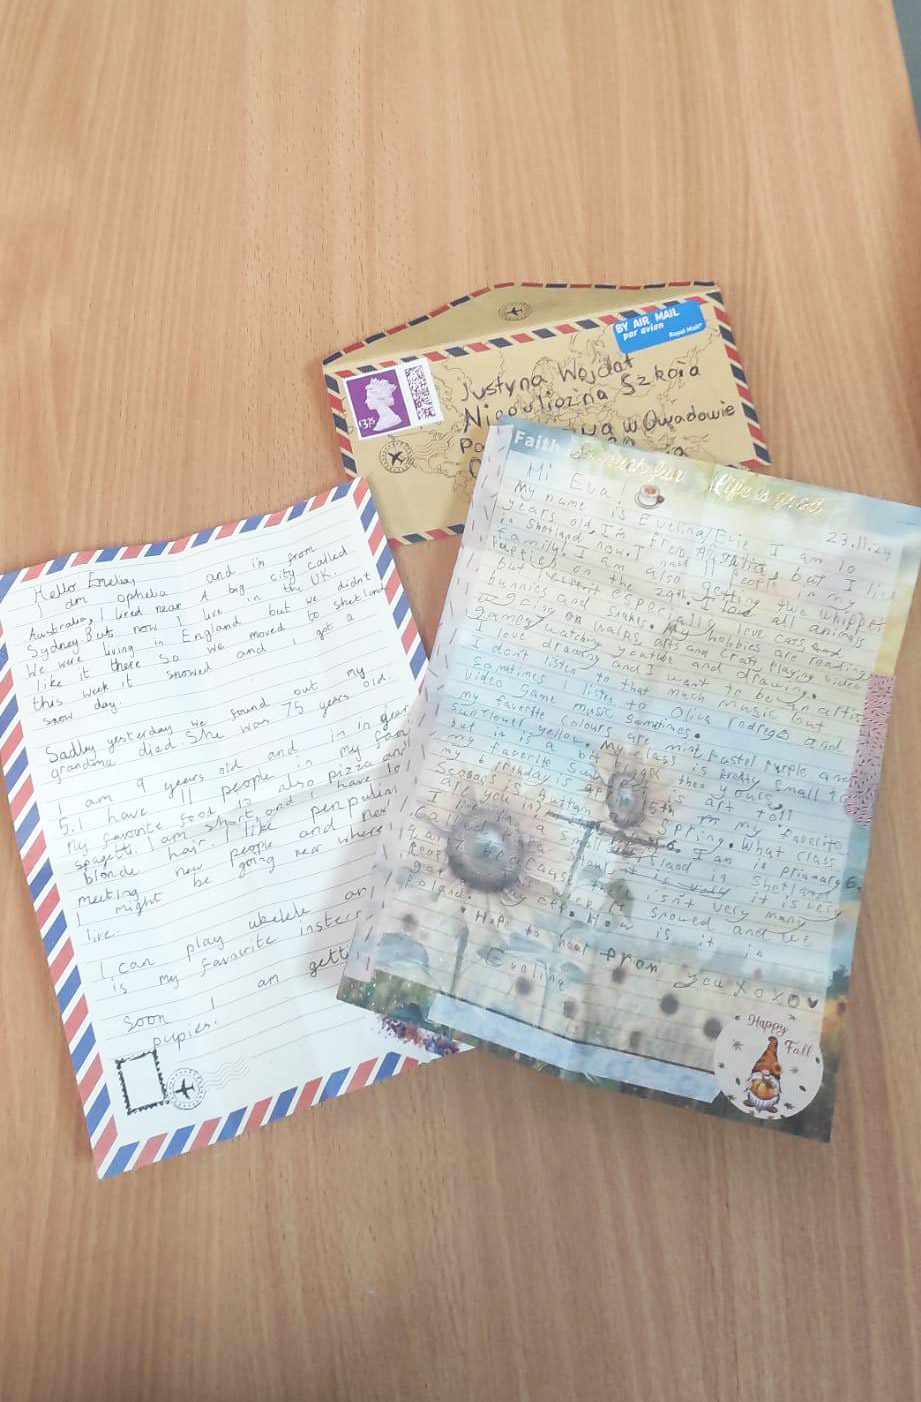 BY AIR MAIL
par avion
Royal Mail
Justyna Wojdat
Szkoła
w Owadowie
Hello Emelia,
am Ophelia and im from
Australia, I lived near A big city called
Sydney. But now I live in the UK.
We were living in England but we didnt
like it there so we moved to shetland
this week it snowed and I got a
snow day.
Sadly yesterday we found out my
grandma died. She was 75 years old.
I am 9 years old and im in
5. I have 11 people in my
my favorite food is also pizza and
spagetti. I am short and I have
blonde hair. I like
meeting new people and
I might be going near where
live.
I can play ukelele
is my favorite
Soon I am
pupies.
Faith
fun Life is good
23.11.24
Hi Eva!
My name is Evelina/Evie I am 10
years old, I'm from Australia, but I live
in shetland now. I have 11 people in my
family. I am also getting two whippet
puppies on the 29th. I love all animals
but especally love cats, and
bunnies and snakes. My hobbies are reading
going on walks, arts and craft, playing video
games, watching youtube and drawing.
I love drawing and I want to be an artist
I don't listen to that much music but
somtimes I listen to and
video game music somtimes.
my favorite colours are mint, pastel purple and
sunflower yellow. My class is pretty small
but it is a bit bigger then yours.
my favorite is art
my birthday is 15th my favorite
is Spring. What class
are you in? I am in primary 6.
I live in a small island in shetland
it is very
isn't very many
snowed and we
got How is it in
Poland.
Hope to hear from you XOXO
Evelina
Happy
Fall